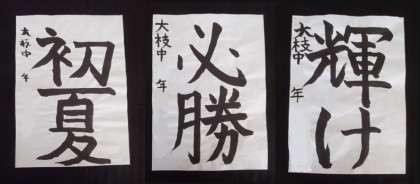 初夏
大枝中 年
必勝
大枝中 年
輝け
大枝中 年